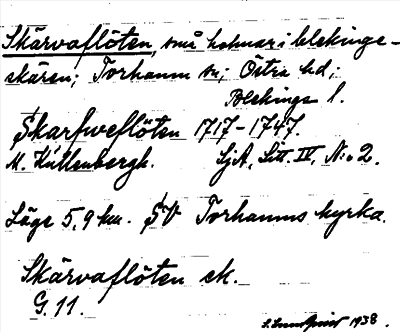 Skärvaflöten, små holmar i blekinge-
skären; Torhamn sn; Östra hd;
Blekinge l.
Skarfweflöten 1717-1747.
M. Küllenbergh. SjA, Litt. IV, N:o 2.
Läge 5,9 km. SV Torhamns kyrka.
Skärvaflöten ek.
G. 11.
S. Lundqvist 1938.